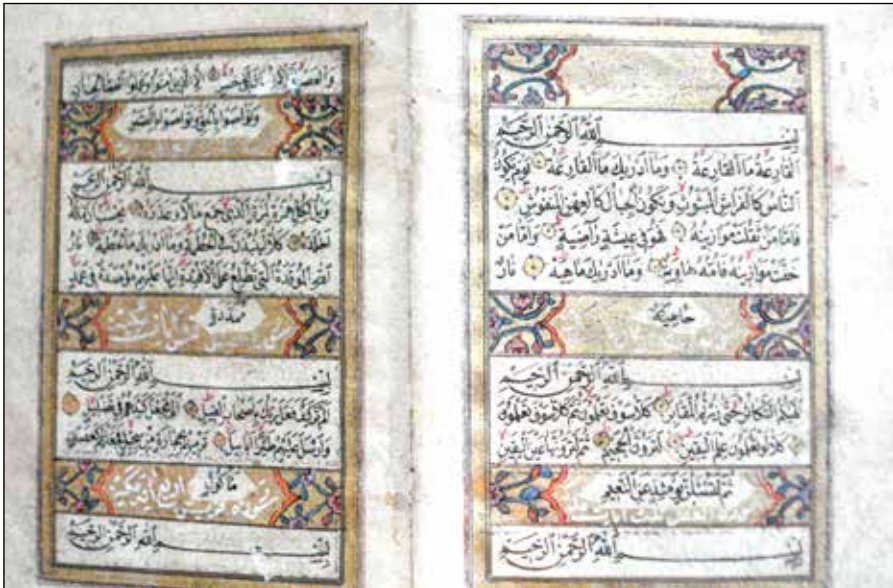 بِسْمِ اللهِ الرَّحْمٰنِ الرَّحِيمِ
اَلْقَارِعَةُ مَا الْقَارِعَةُ وَمَا أَدْرٰيكَ مَا الْقَارِعَةُ يَوْمَ يَكُونُ
النَّاسُ كَالْفَرَاشِ الْمَبْثُوثِ وَتَكُونُ الْجِبَالُ كَالْعِهْنِ الْمَنْفُوشِ
فَأَمَّا مَنْ ثَقُلَتْ مَوَازِينُهُ فَهُوَ فِي عِيشَةٍ رَاضِيَةٍ وَأَمَّا مَنْ
خَفَّتْ مَوَازِينُهُ فَأُمُّهُ هَاوِيَةٌ وَمَا أَدْرٰيكَ مَاهِيَهْ نَارٌ
حَامِيَةٌ
بِسْمِ اللهِ الرَّحْمٰنِ الرَّحِيمِ
اَلْهٰيكُمُ التَّكَاثُرُ حَتّٰى زُرْتُمُ الْمَقَابِرَ كَلَّا سَوْفَ تَعْلَمُونَ ثُمَّ كَلَّا سَوْفَ تَعْلَمُونَ
كَلَّا لَوْ تَعْلَمُونَ عِلْمَ الْيَقِينِ لَتَرَوُنَّ الْجَحِيمَ ثُمَّ لَتَرَوُنَّهَا عَيْنَ الْيَقِينِ
ثُمَّ لَتُسْئَلُنَّ يَوْمَئِذٍ عَنِ النَّعِيمِ
بِسْمِ اللهِ الرَّحْمٰنِ الرَّحِيمِ
وَالْعَصْرِ اِنَّ الْاِنْسَانَ لَفِي خُسْرٍ اِلَّا الَّذِينَ اٰمَنُوا وَعَمِلُوا الصَّالِحَاتِ
وَتَوَاصَوْا بِالْحَقِّ وَتَوَاصَوْا بِالصَّبْرِ
بِسْمِ اللهِ الرَّحْمٰنِ الرَّحِيمِ
وَيْلٌ لِكُلِّ هُمَزَةٍ لُمَزَةٍ الَّذِي جَمَعَ مَالًا وَعَدَّدَهُ يَحْسَبُ اَنَّ مَالَهُ
اَخْلَدَهُ كَلَّا لَيُنْبَذَنَّ فِي الْحُطَمَةِ وَمَا اَدْرٰيكَ مَا الْحُطَمَةُ نَارُ
اللهِ الْمُوقَدَةُ الَّتِي تَطَّلِعُ عَلَى الْاَفْئِدَةِ اِنَّهَا عَلَيْهِمْ مُؤْصَدَةٌ فِي عَمَدٍ
مُمَدَّدَةٍ
بِسْمِ اللهِ الرَّحْمٰنِ الرَّحِيمِ
اَلَمْ تَرَ كَيْفَ فَعَلَ رَبُّكَ بِاَصْحَابِ الْفِيلِ اَلَمْ يَجْعَلْ كَيْدَهُمْ فِي تَضْلِيلٍ
وَاَرْسَلَ عَلَيْهِمْ طَيْرًا اَبَابِيلَ تَرْمِيهِمْ بِحِجَارَةٍ مِنْ سِجِّيلٍ فَجَعَلَهُمْ كَعَصْفٍ
مَأْكُولٍ
بِسْمِ اللهِ الرَّحْمٰنِ الرَّحِيمِ